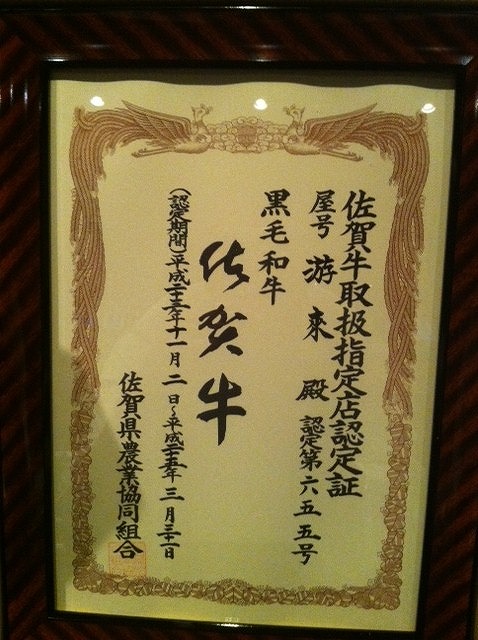 佐賀牛取扱指定店認定証
屋号 游来 殿 認定第六五五号
黒毛和牛
佐賀牛
(認定期間)平成二十三年十一月二日~平成二十五年三月三十一日
佐賀県農業協同組合